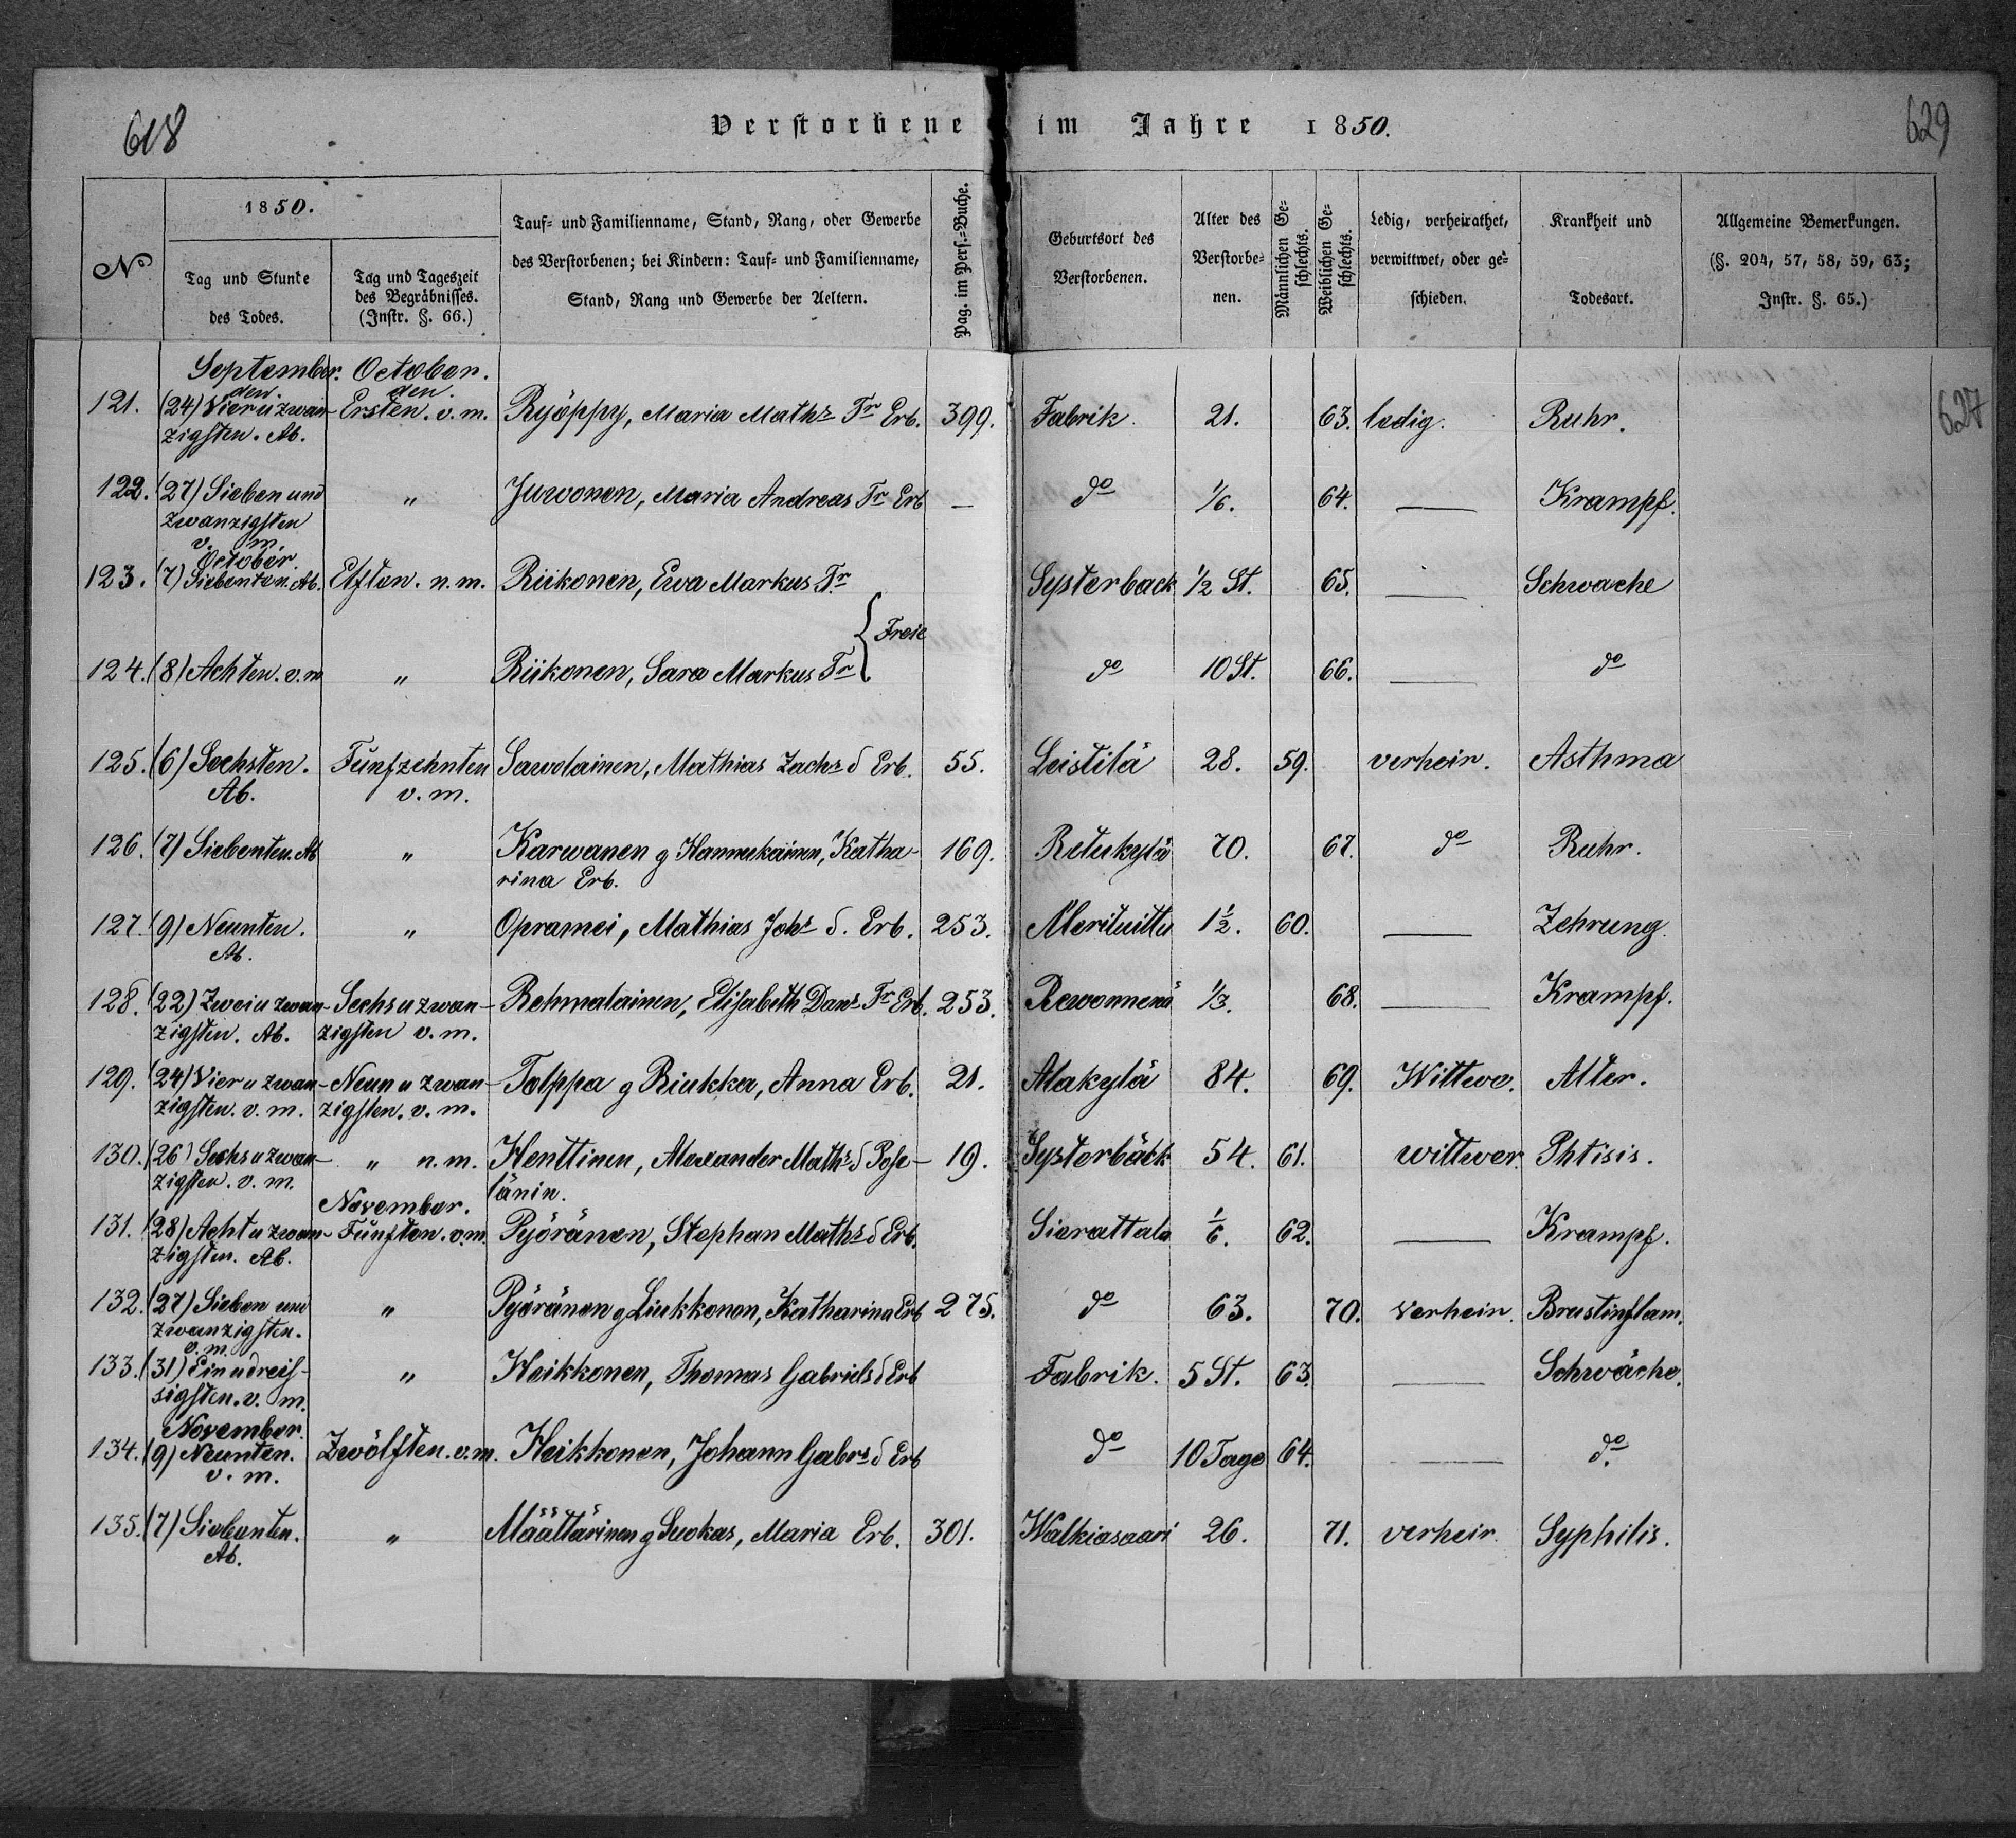 618
Verstorbene im Jahre 1850.
629
No
1850.
Tag und Stunde des Todes.
Tag und Tageszeit des Begräbnisses. (Instr. §. 66.)
Tauf- und Familienname, Stand, Rang, oder Gewerbe des Verstorbenen; bei Kindern: Tauf- und Familienname, Stand, Rang und Gewerbe der Aeltern.
Pag. im Pers.-Buche.
Geburtsort des Verstorbenen.
Alter des Verstorbe- nen.
Männlichen Ge- schlechts.
Weiblichen Ge- schlechts.
Ledig, verheirathet, verwittwet, oder ge- schieden.
Krankheit und Todesart.
Allgemeine Bemerkungen. (§. 204, 57, 58, 59, 63; Instr. §. 65.)
September. October.
den. den.
121. (24) Vier u zwan- Ersten. v. m. Ryöppy, Maria Maths Tr Erb. 399. Fabrik. 21. 63. ledig. Ruhr. 627
zigsten. Ab.
122. (27) Sieben und " Juvonen, Maria Andreas Tr Erb — do 1/6. 64. — Krampf.
zwanzigsten
v. m.
October.
123. (7) Siebenten. Ab. Elften. n. m. Riikonen, Ewa Markus Tr Systerback 1/2 St. 65. — Schwache
{ Freie
124. (8) Achten. v. m " Riikonen, Sara Markus Tr do 10 St. 66. — do
125. (6) Sechsten. Fünfzehnten Sawolainen, Mathias Zachs d Erb. 55. Leistilä 28. 59. verheir. Asthma
Ab. v. m.
126. (7) Siebenten. Ab " Karwanen g Hannukainen, Katha- 169. Retukylä 70. 67. do Ruhr.
rina Erb.
127. (9) Neunten. " Opramei, Mathias Johs d. Erb. 253. Merituittu 1 1/2. 60. — Zehrung
Ab.
128. (22) Zwei u zwan- Sechs u zwan- Rehmalainen, Elisabeth Dans Tr Erb. 253. 1/3. 68. — Krampf.
zigsten. Ab. zigsten v. m.
129. (24) Vier u zwan- Neun u zwan- Talppa g Riukka, Anna Erb. 21. Alakylä 84. 69. Wittwe. Alter.
zigsten. v. m. zigsten. v. m.
130. (26) Sechs u zwan- " n. m. Henttinen, Alexander Maths d Pose- 19. Systerbäck 54. 61. wittwer. Phtisis.
zigsten. v. m. länin.
November.
131. (28) Acht u zwan- Fünften. v. m. Pyöränen, Stephan Maths d Erb. Sierattala 1/6. 62. — Krampf.
zigsten. Ab.
132. (27) Sieben und " Pyöränen g Liukkonen, Katharina Erb 275. do 63. 70. verheir. Brustinflam.
zwanzigsten.
v. m.
133. (31) Ein u dreis- " Heikkonen, Thomas Gabriels d Erb Fabrik. 5 St. 63. — Schwäche.
sigsten. v. m.
November.
134. (9) Neunten. Zwölften. v. m. Heikkonen, Johann Gabrs d Erb do 10 Tage 64. — do.
v. m.
135. (7) Siebenten. " Määttärinen g Suokas, Maria Erb. 301. Walkiasaari 26. 71. verheir. Syphilis.
Ab.